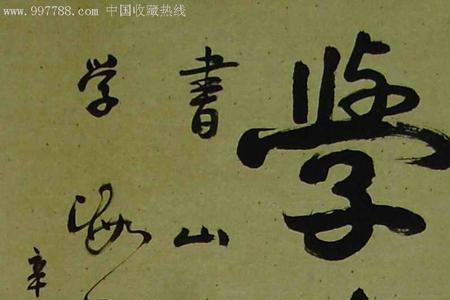 www.997788.com 中国收藏热线
學
書山
学海
辛